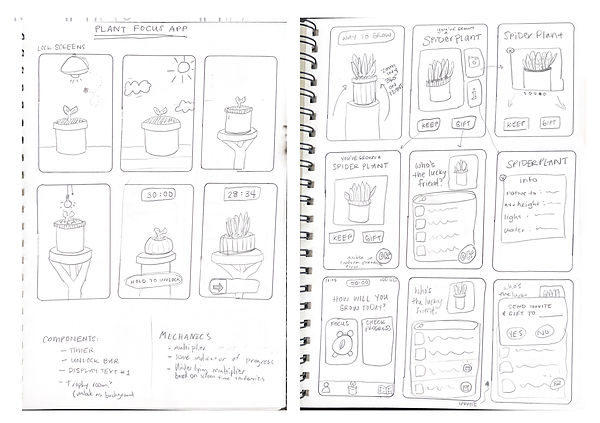 PLANT FOCUS APP
LOCK SCREENS
30:00
28:34
HOLD TO UNLOCK
COMPONENTS:
- TIMER
- UNLOCK BAR
- DISPLAY TEXT #1
- Trophy room?
(unlock as background)
MECHANICS
- multiplier
- some indicator of progress
- Underlying multiplier
based on screen time tendencies
WAY TO GROW
YOU'VE GROWN A
SPIDER PLANT
KEEP
GIFT
SPIDER PLANT
KEEP
GIFT
YOU'VE GROWN A
SPIDER PLANT
KEEP
GIFT
WHO'S
the lucky
friend?
SPIDER PLANT
info
native to:
avg height:
light:
water:
00:00
HOW WILL YOU
GROW TODAY?
FOCUS
CHECK
PROGRESS
Who's
the lucky
friend?
who's
the lucky
SEND INVITE
& GIFT TO
YES
NO